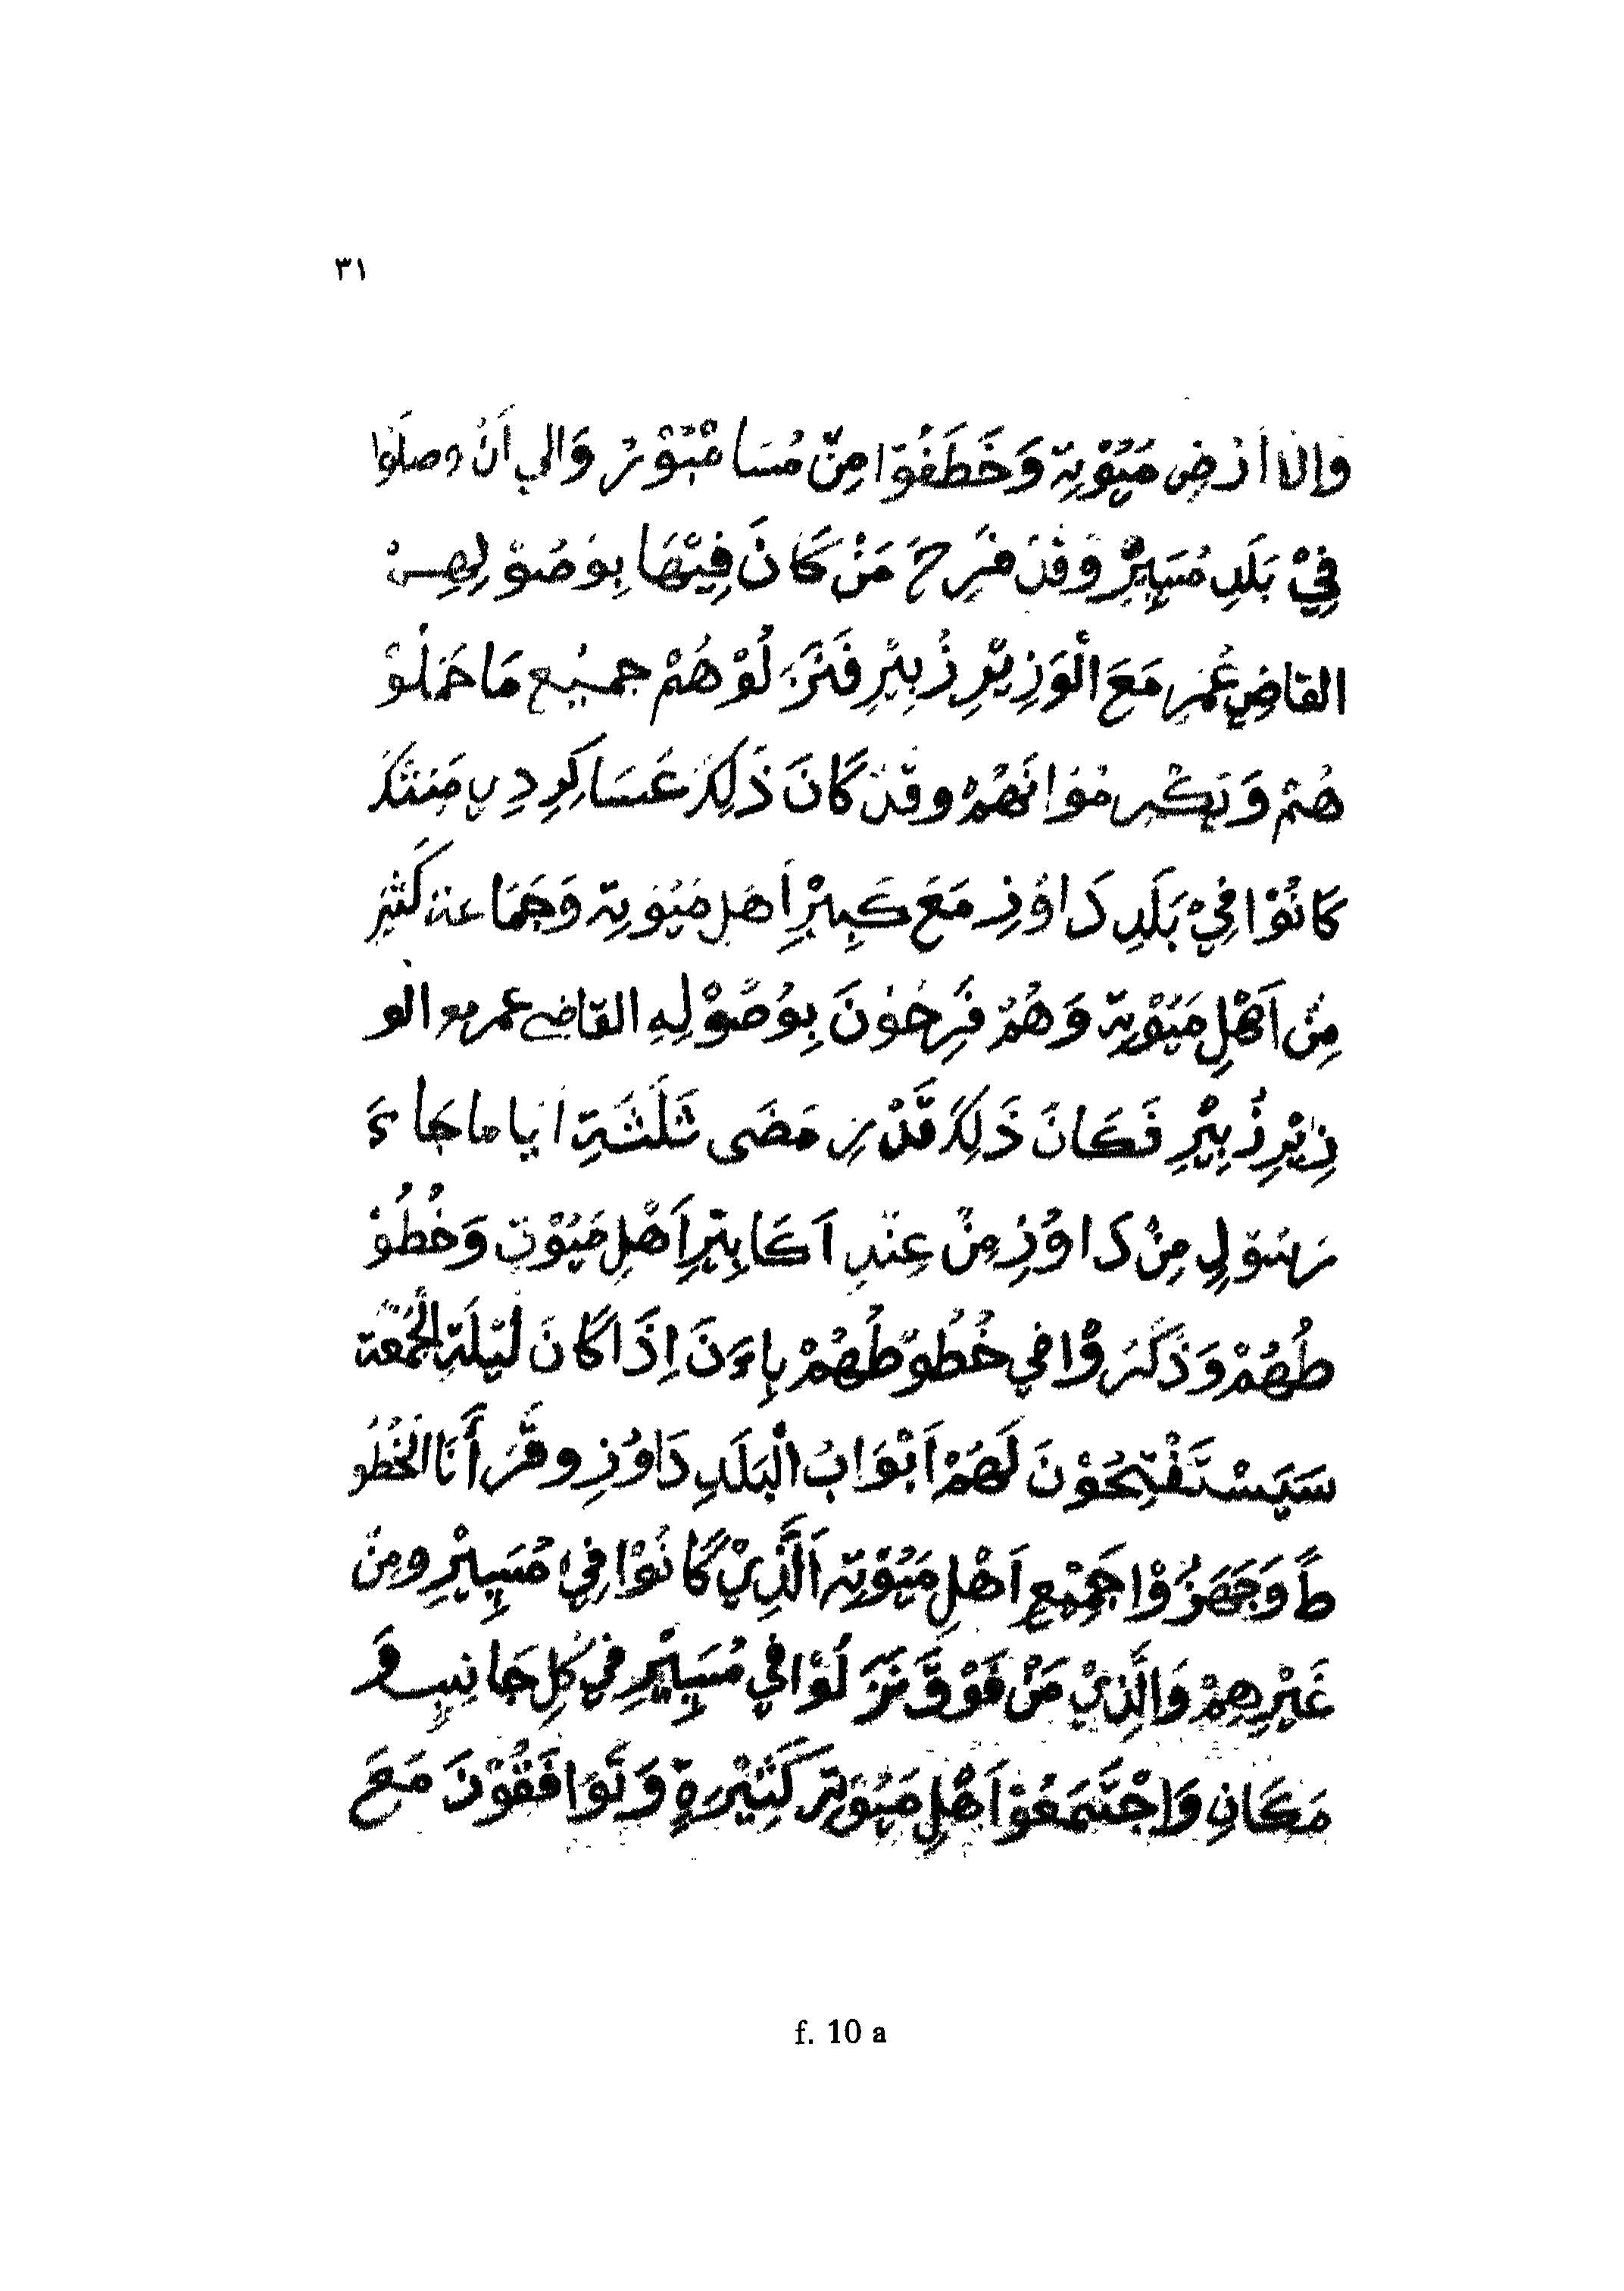 ٣١
وَإِلَا أَرْضِ مَيُوْيِهْ وَخَطَفُوْا مِنْ مُسَا مْبُوْرُ وَالِي اَنْ وصلَوْا
فِيْ بَلَدِ مُسَيِيْرِ وَقَدْ فَرِحَ مَنْ كَانَ فِيْهَا بِوُصُوْلِهِ
القاضِي عُمَرِ مَعَ الْوَزِيْرِ زُبِيْرِ فَنَزَلُوْ هُمْ جميع مَا حَمَلُوْ
هُمْ وَيَكْرِمُوْا نَهُمْ وقَدْ كَانَ ذَلِكَ عَسَاكِرِ دِي مَنَنْكَ
كَانُوْا فِيْ بَلَدِ دَاوُزِ مَعَ كَبِيْرِ اَهْلِ مَيُوْيِهْ وَجَمَاعة كَثِيْرِ
مِنْ اَهْلِ مَيُوْيِهْ وَهُمْ فَرِحُوْنَ بِوُصُوْلِهِ القاضي عمر مع الو
زِيْرِ زُبِيْرِ فَكَانَ ذَلِكَ قَدْرِ مَضَى ثَلَثَةِ اَياما جَاءَ
رَسُوْلِي مِنْ دَاوُزِ مِنْ عِنْدِ اَكَابِيْرِ اَهْلِ مَيُوْيِ وَخُطُوْ
طُهُمْ وَذَكَرُوْا في خُطُوْطُهُمْ بِاءَنَ اِذَا كَانَ لَيْلَةِ الْجُمْعَة
سَيَسْتَفْتِحُوْنَ لَهُمْ اَبْوَابُ الْبَلَدِ دَاوُزِ وقَرَأْنَا الْخُطُو
طً وَجَهَزُوْا جَمِيْعِ اَهْلِ مَيُوْيِهْ اَلَّذِيْ كَانُوْا فِي مُسَيِيْرِ ومِنْ
غَيْرِهِمْ وَالَّذِيْ مَنْ فَوْقَ نَزَلُوْا في مُسَيِيْرِ فِيْ كُلِ جَانِبِ وَ
مَكَانِ وَاجْتَمَعُوْا اَهْلِ مَيُوْيِهْ كَثِيْرَةٍ وَتَوَافَقُوْنَ مَعَ
f. 10 a